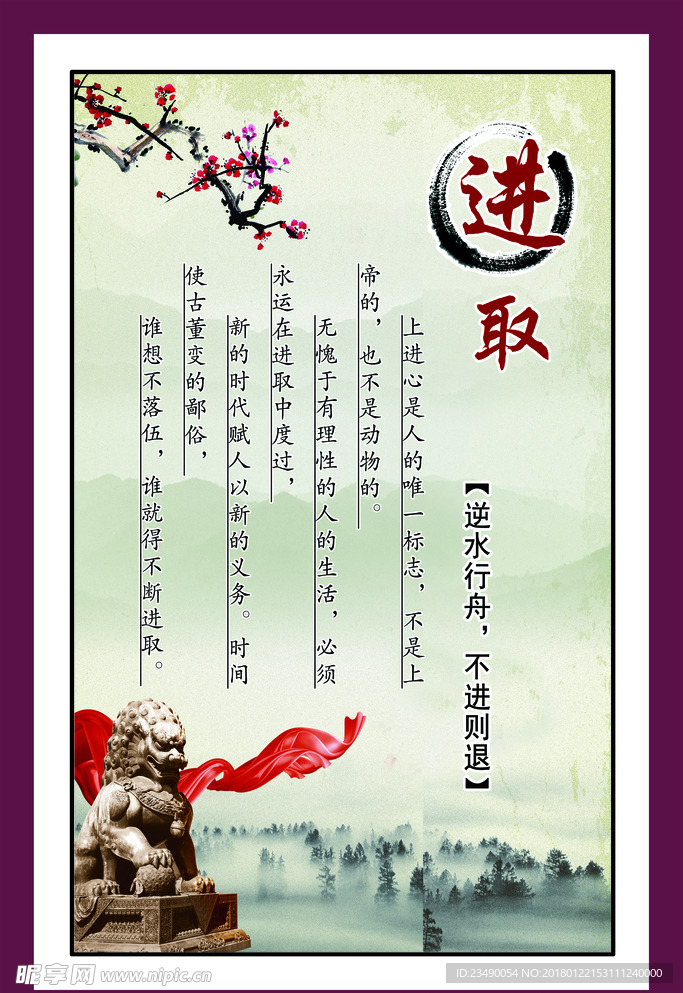 进取
【逆水行舟，不进则退】
上进心是人的唯一标志，不是上
帝的，也不是动物的。
无愧于有理性的人的生活，必须
永运在进取中度过，
新的时代赋人以新的义务。时间
使古董变的鄙俗，
谁想不落伍，谁就得不断进取。
昵享网 www.nipic.cn
ID:23490054 NO:20180122153111240000